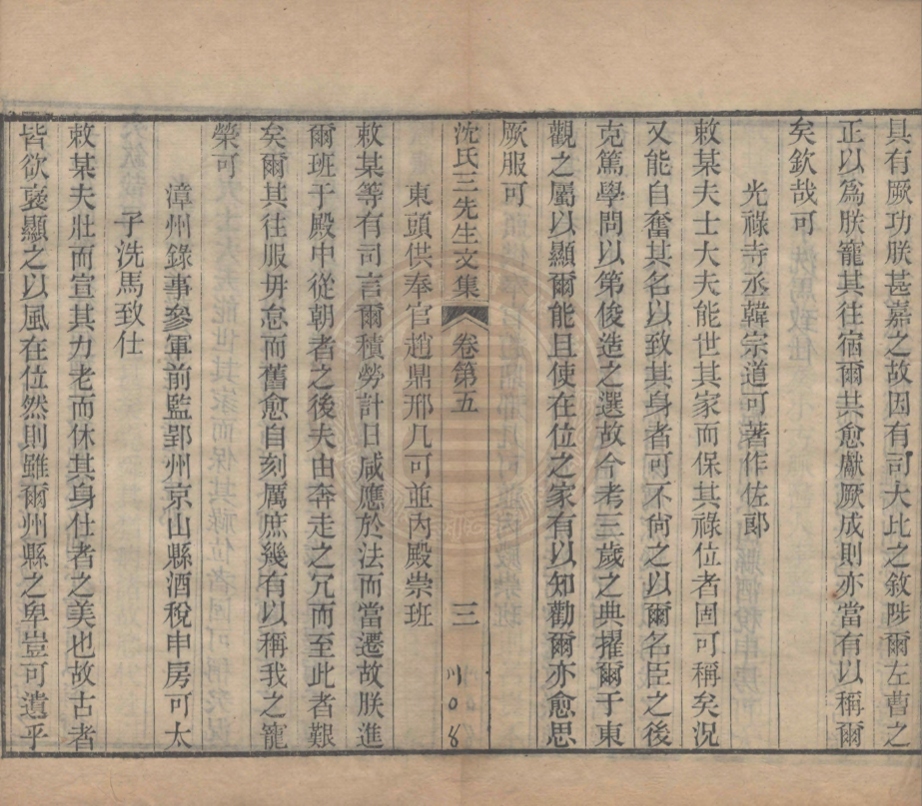 具有厥功朕甚嘉之故因有司大比之敘陟爾左曹之
正以為朕寵其往宿爾其愈獻厥成則亦當有以稱爾
矣欽哉可
光祿寺丞韓宗道可著作佐郎
敕某夫士大夫能世其家而保其祿位者固可稱矣況
又能自奮其名以致其身者可不尙之以爾名臣之後
克篤學問以第俊造之選故今考三歲之典擢爾于東
觀之屬以顯爾能且使在位之家有以知勸爾亦愈思
厥服可
沈氏三先生文集
卷第五
三
川08
東頭供奉官趙鼎邢几可並內殿崇班
敕某等有司言爾積勞計日咸應於法而當遷故朕進
爾班于殿中從朝者之後夫由奔走之冗而至此者艱
矣爾其往服毋怠而舊愈自刻厲庶幾有以稱我之寵
榮可
漳州錄事參軍前監郢州京山縣酒稅申房可太
子洗馬致仕
敕某夫壯而宣其力老而休其身仕者之美也故古者
皆欲襃顯之以風在位然則雖爾州縣之卑豈可遺乎